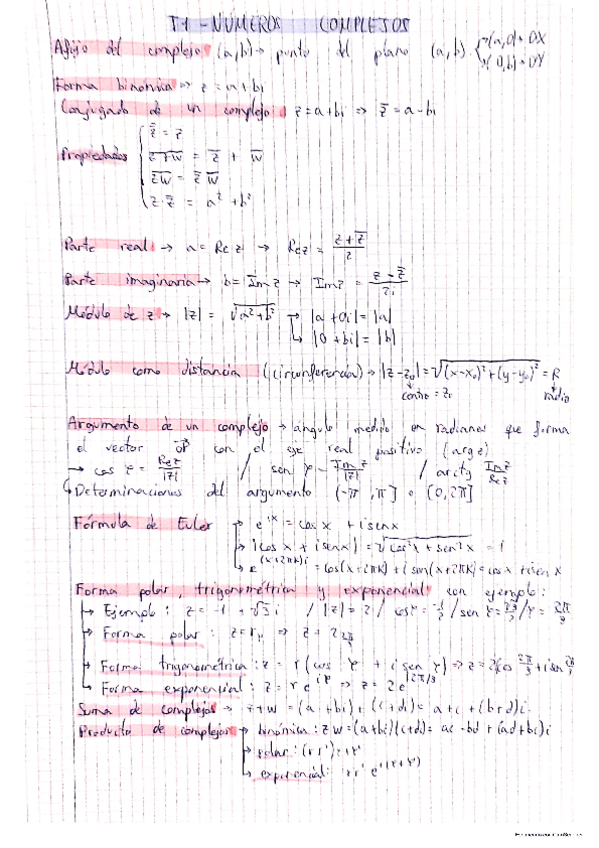 T1 - NÚMEROS COMPLEJOS
Afijo del complejo (a,b) → punto del plano (a,b) { (a,0) ∈ OX
(0,b) ∈ OY
Forma binómica ⇒ z = a + bi
Conjugado de un complejo z = a + bi ⇒ z̄ = a - bi
Propiedades { z̿ = z
z+w̅ = z̅ + w̅
z̅w̅ = z̅ w̅
z·z̅ = a² + b²
Parte real → a = Re z → Re z = (z + z̅)/2
Parte imaginaria → b = Im z → Im z = (z - z̅)/2i
Módulo de z → |z| = √(a² + b²) → |a + 0i| = |a|
↳ |0 + bi| = |b|
Módulo como distancia (circunferencia) → |z - z₀| = √((x-x₀)² + (y-y₀)²) = R
centro = z₀ radio
Argumento de un complejo → ángulo medido en radianes que forma
el vector OP con el eje real positivo (arg z)
→ cos φ = Re z/|z| / sen φ = Im z/|z| / arctg Im z/Re z
↳ Determinaciones del argumento (-π, π] o [0, 2π]
Fórmula de Euler → e^(ix) = cos x + i sen x
→ |cos x + i sen x| = √(cos² x + sen² x) = 1
↳ e^((x+2πk)i) = cos(x+2πk) + i sen(x+2πk) = cos x + i sen x
Forma polar, trigonométrica y exponencial con ejemplo:
→ Ejemplo: z = -1 + √3 i / |z| = 2 / cos φ = -1/2 / sen φ = √3/2 / φ = 2π/3
→ Forma polar: z = r_φ ⇒ z = 2_(2π/3)
→ Forma trigonométrica: z = r (cos φ + i sen φ) ⇒ z = 2(cos 2π/3 + i sen 2π/3)
↳ Forma exponencial: z = r e^(iφ) ⇒ z = 2e^(i2π/3)
Suma de complejos → z + w = (a + bi) + (c + di) = a + c + (b + d)i
Producto de complejos → binómica: z w = (a + bi)(c + di) = ac - bd + (ad + bc)i
→ polar: (r r')φ+φ'
↳ exponencial: rr' e^(i(φ+φ'))